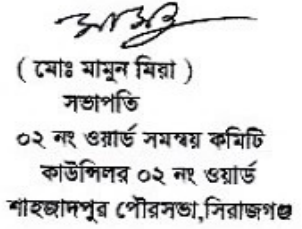 ( মোঃ মামুন মিরা )
সভাপতি
০২ নং ওয়ার্ড সমন্বয় কমিটি
কাউন্সিলর ০২ নং ওয়ার্ড
শাহজাদপুর পৌরসভা,সিরাজগঞ্জ